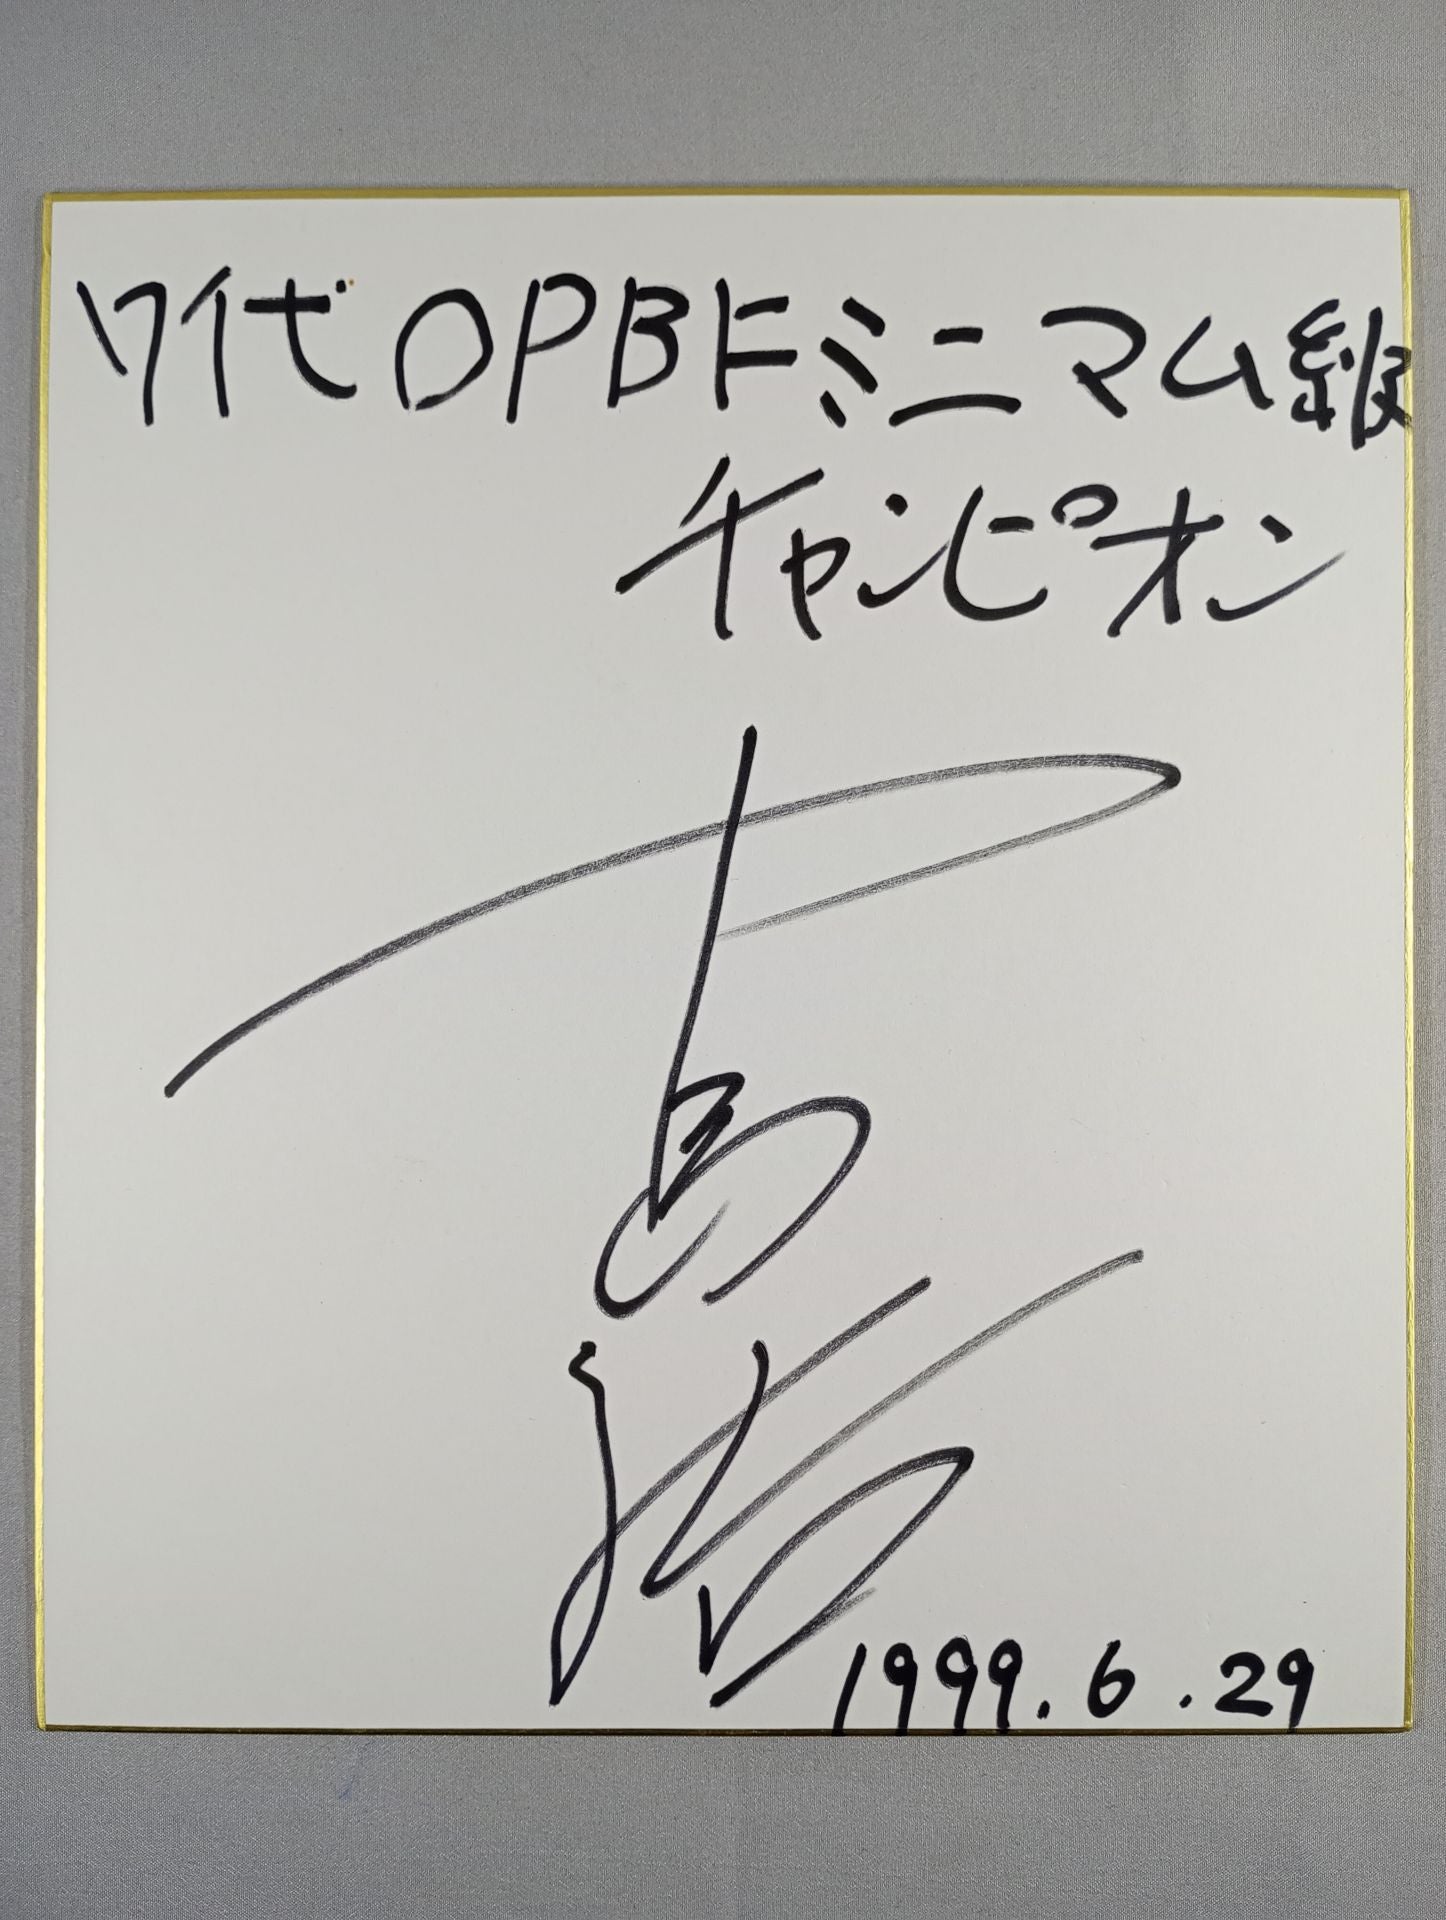 17代OPBFミニマム級
チャンピオン
1999.6.29